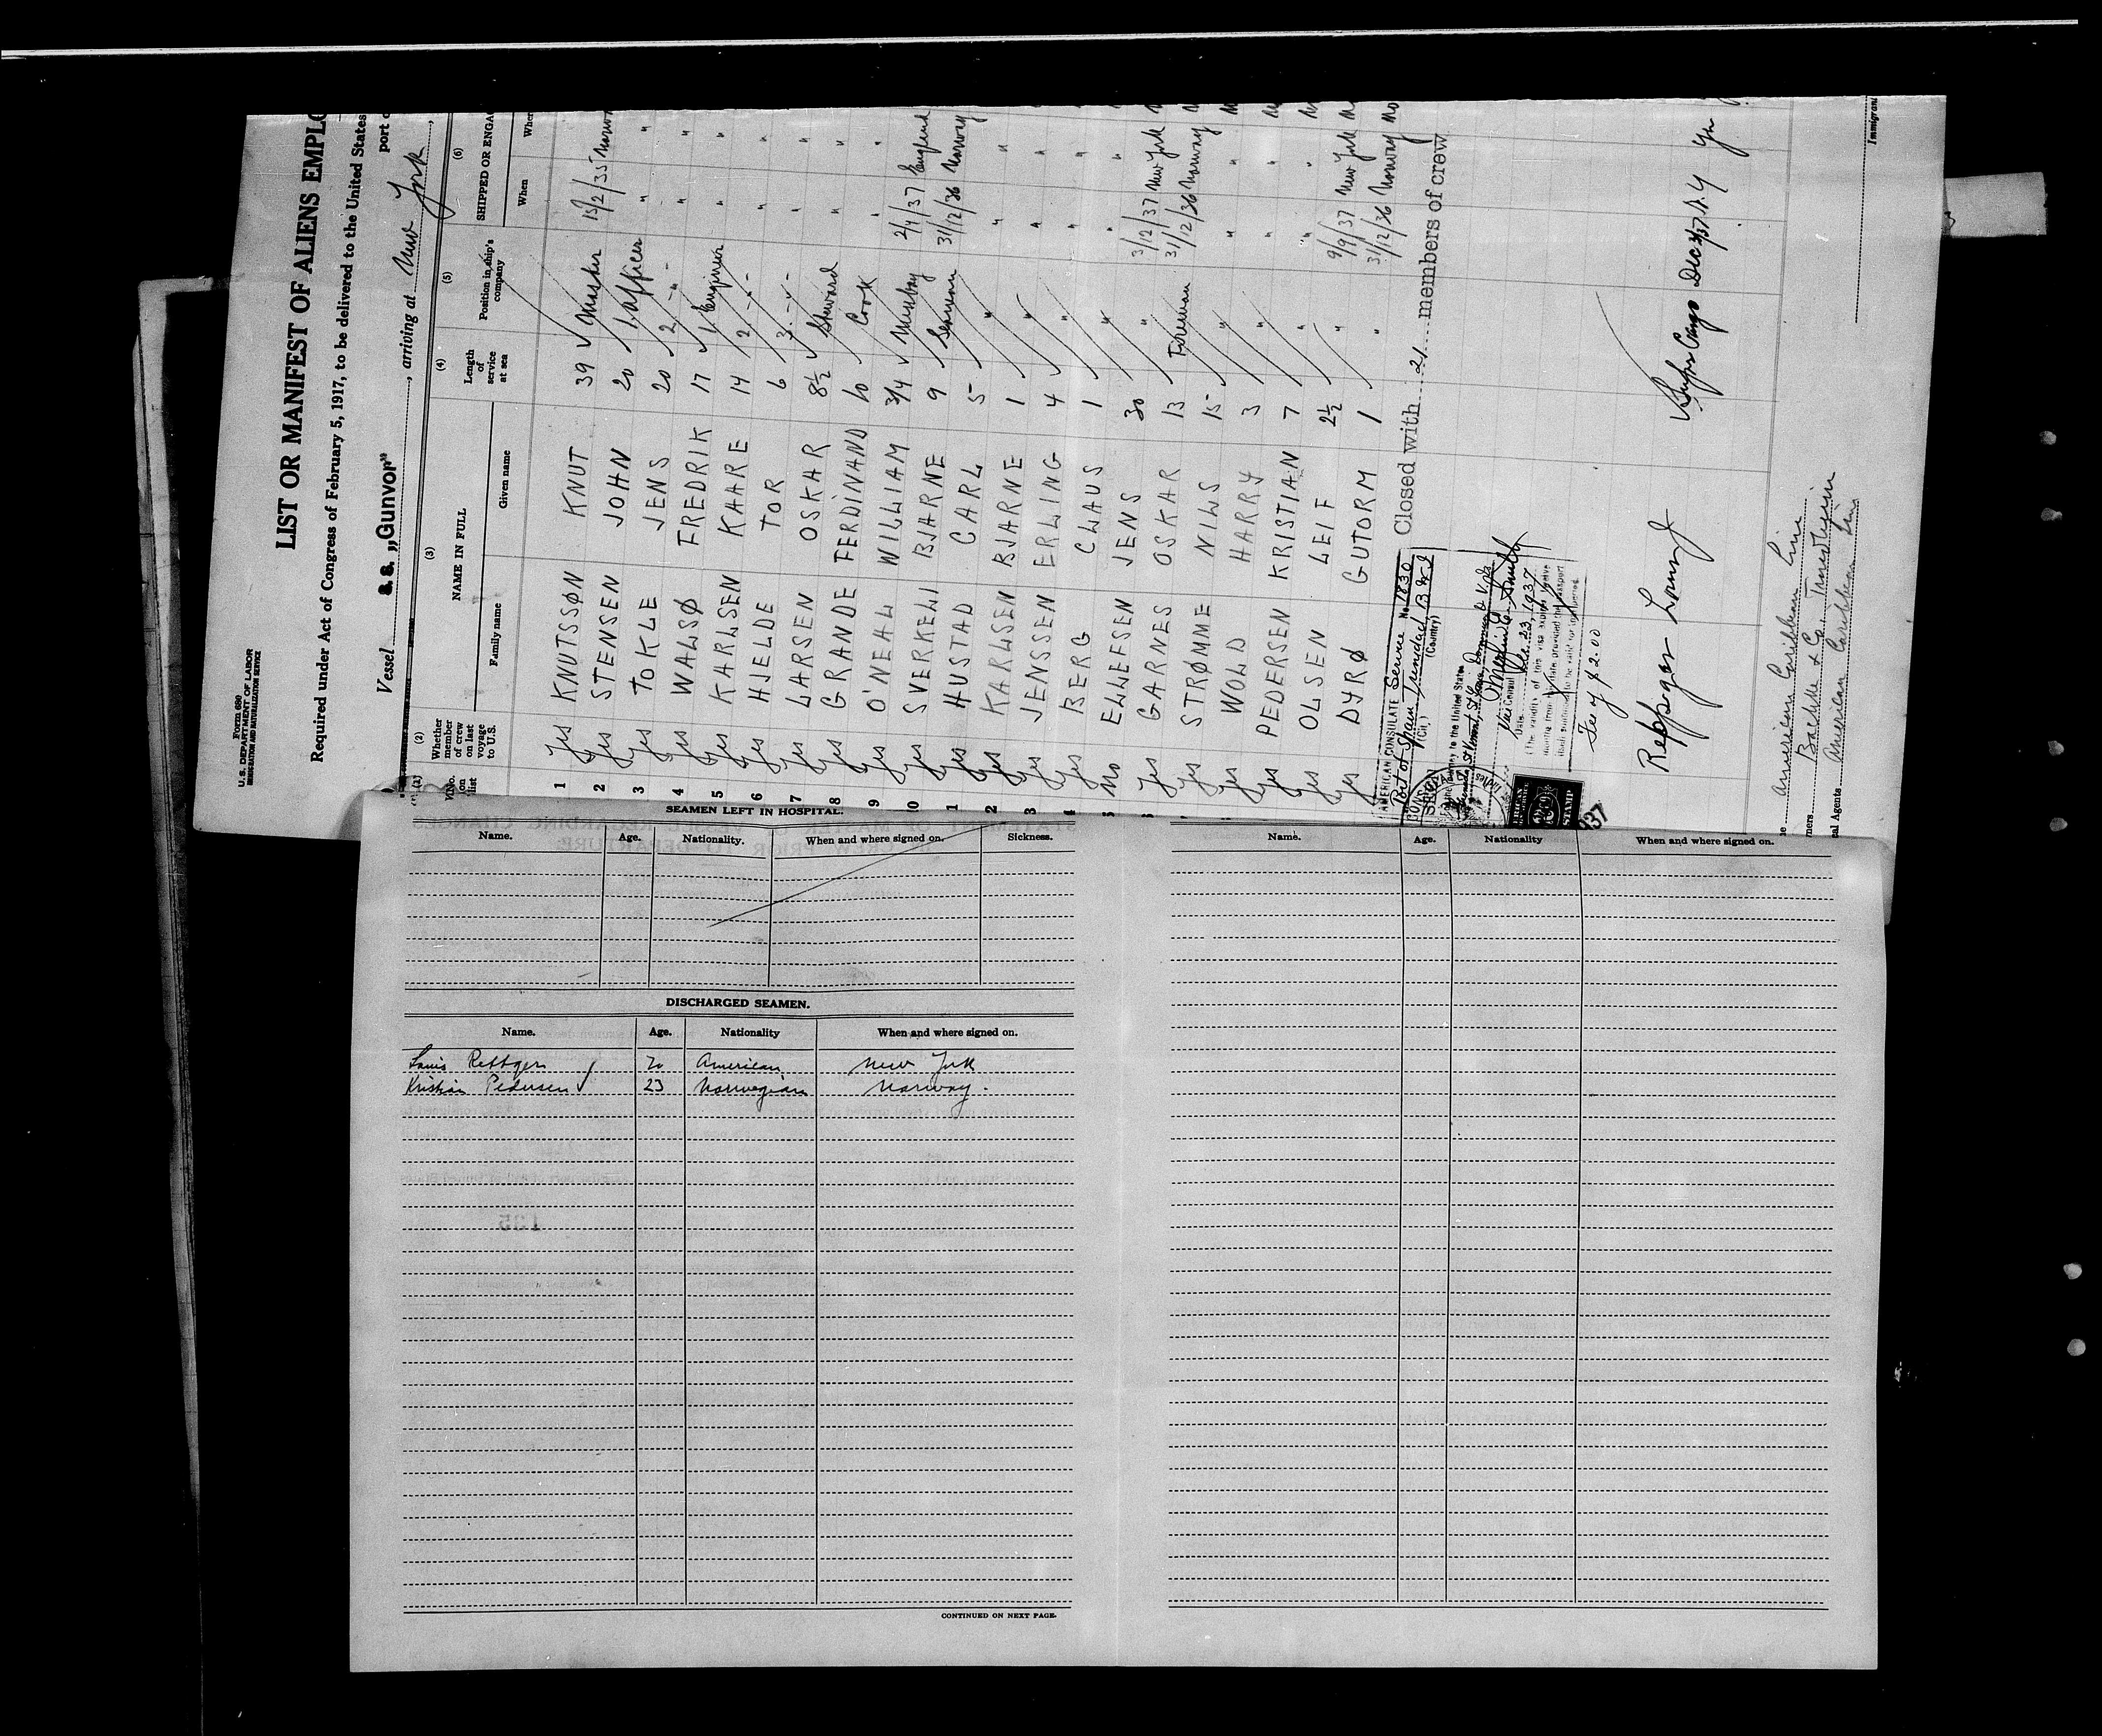 Form 680
U. S. DEPARTMENT OF LABOR
IMMIGRATION AND NATURALIZATION SERVICE
LIST OR MANIFEST OF ALIENS EMPLO
Required under Act of Congress of February 5, 1917, to be delivered to the United States
Vessel S. S. „Gunvor", arriving at New York, port o
(1) (2) (3) (4) (5) (6)
No. on list Whether member of crew on last voyage to U.S. NAME IN FULL Length of service at sea Position in ship's company SHIPPED OR ENGA
Family name Given name When Wher
1 Yes KNUTSSØN KNUT 39 Master 15/2/35 Norw
2 Yes STENSEN JOHN 20 1 Officer " "
3 Yes TOKLE JENS 20 2 - " - " "
4 Yes WALSØ FREDRIK 17 1 Engineer " "
5 Yes KARLSEN KAARE 14 2 - " - " "
6 Yes HJELDE TOR 6 3 - " - " "
7 Yes LARSEN OSKAR 8½ Steward " "
8 Yes GRANDE FERDINAND 10 Cook " "
9 Yes O'NEAL WILLIAM 3/4 Messboy 2/4/37 England
10 Yes SVERKELI BJARNE 9 Seaman 31/12/36 Norway
1 Yes HUSTAD CARL 5 " " "
2 Yes KARLSEN BJARNE 1 " " "
3 Yes JENSSEN ERLING 4 " " "
4 Yes BERG CLAUS 1 " " "
5 No ELLEFSEN JENS 30 " 3/12/37 New York
6 Yes GARNES OSKAR 13 Fireman 31/12/36 Norway
Yes STRØMME NILS 15 " " "
Yes WOLD HARRY 3 " " "
Yes PEDERSEN KRISTIAN 7 " " "
Yes OLSEN LEIF 2½ " 9/9/37 New York
Yes DYRØ GUTORM 1 " 31/12/36 Norway
Closed with 21 members of crew
AMERICAN CONSULATE Service No. 1830
Port of Spain Trinidad B W I
(City) (Country)
to the United States
Vice Consul
Date Dec. 23, 1937
(The validity of this visa expires twelve
months from this date provided the passport
continues to be valid for that period.
Fee of $2.00
Rettger Louis
Dec 3/37 N.Y
American Caribbean Line
Owners
American Caribbean Line
Local Agents
Immigrant
SEAMEN LEFT IN HOSPITAL.
Name. Age. Nationality. When and where signed on. Sickness.
DISCHARGED SEAMEN.
Name. Age. Nationality When and where signed on.
Louis Rettger 20 American New York
Kristian Pedersen 23 Norwegian Norway.
CONTINUED ON NEXT PAGE.
Name. Age. Nationality When and where signed on.